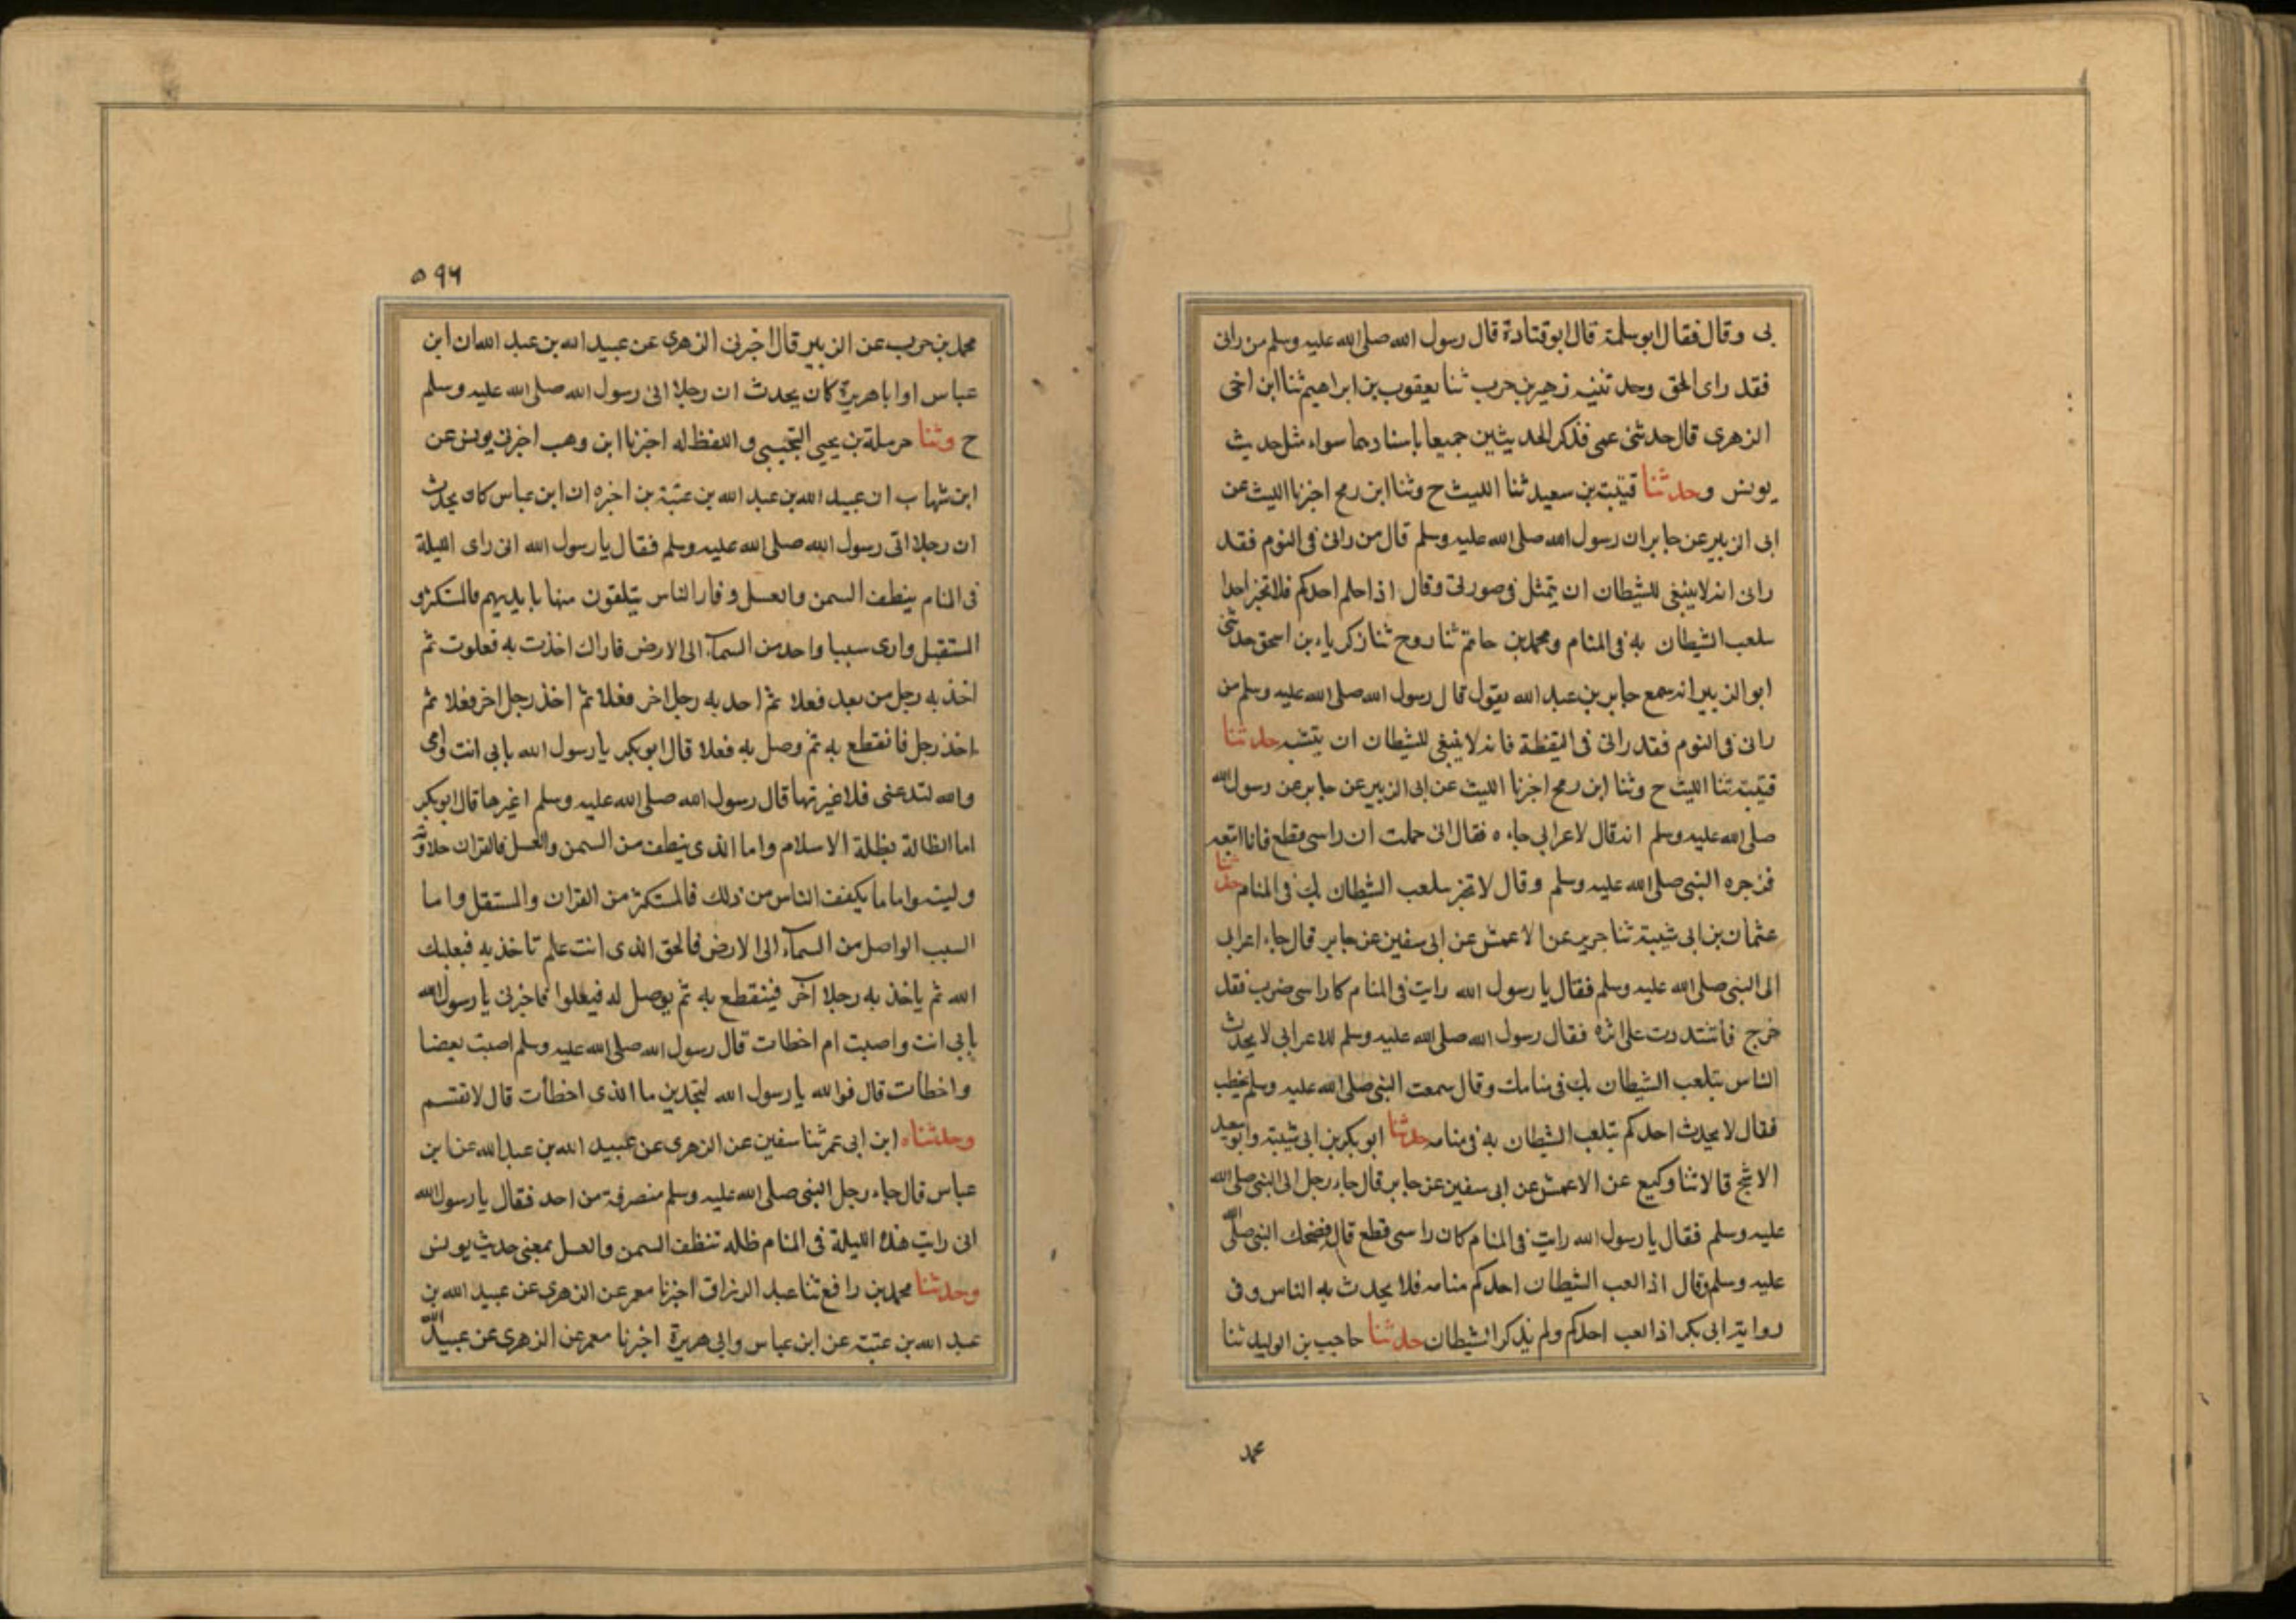 بى وقال فقال ابو سلمة قال ابو قتادة قال رسول الله صلى الله عليه وسلم من رانى
فقد راى الحق وحدثنيه زهير بن حرب ثنا يعقوب بن ابراهيم ثنا ابن اخى
الزهرى قال حدثنى عمى فذكر الحديثين جميعا باسنادهما سواء مثل حديث
يونس وحدثنا قتيبة بن سعيد ثنا الليث ح وثنا ابن رمح اخبرنا الليث عن
ابى الزبير عن جابر ان رسول الله صلى الله عليه وسلم قال من رانى فى النوم فقد
رانى انه لا ينبغى للشيطان ان يتمثل فى صورتى وقال اذا حلم احدكم فلا تخبر احدا
بلعب الشيطان به فى المنام ومحمد بن حاتم ثنا روح ثنا زكرياء بن اسحق حدثنى
ابو الزبير انه سمع جابر بن عبد الله يقول قال رسول الله صلى الله عليه وسلم من
رانى فى النوم فقد رانى فى اليقظة فانه لا ينبغى للشيطان ان يتشبه حدثنا
قتيبة ثنا الليث ح وثنا ابن رمح اخبرنا الليث عن ابى الزبير عن جابر عن رسول الله
صلى الله عليه وسلم انه قال لاعرابى جاءه فقال انى حلمت ان راسى قطع فانا اتبعه
فزجره النبى صلى الله عليه وسلم وقال لا تخبر بلعب الشيطان بك فى المنام حدثنا
عثمان بن ابى شيبة ثنا جرير عن الاعمش عن ابى سفين عن جابر قال جاء اعرابى
الى النبى صلى الله عليه وسلم فقال يا رسول الله رايت فى المنام كان راسى ضرب فقد
خرج فاشتددت على اثره فقال رسول الله صلى الله عليه وسلم للاعرابى لا يحدث
الناس بتلعب الشيطان بك فى منامك وقال سمعت النبى صلى الله عليه وسلم يخطب
فقال لا يحدث احدكم بتلعب الشيطان به فى منامه حدثنا ابو بكر بن ابى شيبة وابو سعيد
الاشج قالا ثنا وكيع عن الاعمش عن ابى سفين عن جابر قال جاء رجل الى النبى صلى الله
عليه وسلم فقال يا رسول الله رايت فى المنام كان راسى قطع قال فضحك النبى صلى الله
عليه وسلم وقال اذا لعب الشيطان احدكم منامه فلا يحدث به الناس وفى
رواية ابى بكر اذا لعب احدكم ولم يذكر الشيطان حدثنا حاجب بن الوليد ثنا
محمد
٥٩٦
محمد بن حرب عن الزبير قال اخبرنى الزهرى عن عبيد الله بن عبد الله ان ابن
عباس او ابا هريرة كان يحدث ان رجلا اتى رسول الله صلى الله عليه وسلم
ح وثنا حرملة بن يحيى التجيبى واللفظ له اخبرنا ابن وهب اخبرنى يونس عن
ابن شهاب ان عبيد الله بن عبد الله بن عتبة بن اخبره ان ابن عباس كان يحدث
ان رجلا اتى رسول الله صلى الله عليه وسلم فقال يا رسول الله انى راى الليلة
فى المنام ينطف السمن والعسل وفار الناس يتلقون منها بايديهم فالمستكثر و
المستقبل وارى سببا واحد من السماء الى الارض فاراك اخذت به فعلوت ثم
اخذ به رجل من بعد فعلا ثم احد به رجل اخر فعلا ثم اخذ رجل اخر فعلا ثم
اخذ رجل فانقطع به ثم وصل به فعلا قال ابو بكر يا رسول الله بابى انت وامى
والله لتدعنى فلاغيرتها قال رسول الله صلى الله عليه وسلم اغيرها قال ابو بكر
اما الظالة بظلة الاسلام واما الذى ينطف من السمن والعسل فالقران حلاوته
ولينه واما ما يكفف الناس من ذلك فالمستكثر من القران والمستقل واما
السبب الواصل من السماء الى الارض فالحق الذى انت علم تاخذ به فيعليك
الله ثم ياخذ به رجلا آخر فينقطع به ثم يوصل له فيعلوا فاخبرنى يا رسول الله
بابى انت واصبت ام اخطات قال رسول الله صلى الله عليه وسلم اصبت بعضا
واخطأت قال فوالله يا رسول الله لتجدين ما الذى اخطأت قال لا تقتسم
وحدثناه ابن ابى عمر ثنا سفين عن الزهرى عن عبيد الله بن عبد الله عن ابن
عباس قال جاء رجل النبى صلى الله عليه وسلم منصرفة من احد فقال يا رسول الله
انى رايت هذه الليلة فى المنام ظله تنظف السمن والعسل بمعنى حديث يونس
وحدثنا محمد بن رافع ثنا عبد الرزاق اخبرنا معمر عن الزهرى عن عبيد الله بن
عبد الله بن عتبة عن ابن عباس وابى هريرة اخبرنا معمر عن الزهرى عن عبيد الله